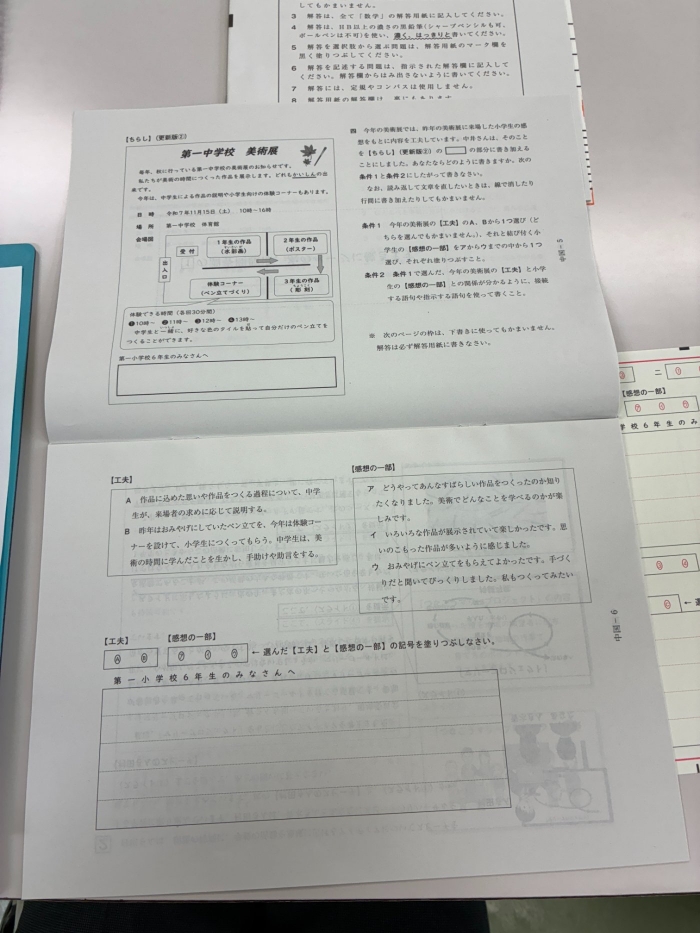 してもかまいません。
3 解答は、全て「数学」の解答用紙に記入してください。
4 解答は、HB以上の濃さの黒鉛筆(シャープペンシルも可、
ボールペンは不可)を使い、濃く、はっきりと書いてください。
5 解答を選択肢から選ぶ問題は、解答用紙のマーク欄を
黒く塗りつぶしてください。
6 解答を記述する問題は、指示された解答欄に記入して
ください。解答欄からはみ出さないように書いてください。
7 解答には、定規やコンパスは使用しません。
【ちらし】(更新版②)
第一中学校 美術展
毎年、秋に行っている第一中学校の美術展のお知らせです。
私たちが美術の時間につくった作品を展示します。どれもかいしんの出
来です。
今年は、中学生による作品の説明や小学生向けの体験コーナーもあります。
日時 令和7年11月15日(土) 10時~16時
場所 第一中学校 体育館
会場図
受付
1年生の作品
(水彩画)
2年生の作品
(ポスター)
出入口
体験コーナー
(ペン立てづくり)
3年生の作品
(彫刻)
体験できる時間(各回30分間)
❶10時~ ❷11時~ ❸12時~ ❹13時~
中学生と一緒に、好きな色のタイルを貼って自分だけのペン立てを
つくることができます。
第一小学校6年生のみなさんへ
四 今年の美術展では、昨年の美術展に来場した小学生の感
想をもとに内容を工夫しています。中井さんは、そのこと
を【ちらし】(更新版②)の の部分に書き加える
ことにしました。あなたならどのように書きますか。次の
条件1と条件2にしたがって書きなさい。
なお、読み返して文章を直したいときは、線で消したり
行間に書き加えたりしてもかまいません。
条件1 今年の美術展の【工夫】のA、Bから1つ選び(ど
ちらを選んでもかまいません)、それと結び付く小
学生の【感想の一部】をアからウまでの中から1つ
選び、それぞれ塗りつぶすこと。
条件2 条件1で選んだ、今年の美術展の【工夫】と小学
生の【感想の一部】との関係が分かるように、接続
する語句や指示する語句を使って書くこと。
※ 次のページの枠は、下書きに使ってもかまいません。
解答は必ず解答用紙に書きなさい。
中国-5
【工夫】
A 作品に込めた思いや作品をつくる過程について、中学
生が、来場者の求めに応じて説明する。
B 昨年はおみやげにしていたペン立てを、今年は体験コー
ナーを設けて、小学生につくってもらう。中学生は、美
術の時間に学んだことを生かし、手助けや助言をする。
【感想の一部】
ア どうやってあんなすばらしい作品をつくったのか知り
たくなりました。美術でどんなことを学べるのかが楽
しみです。
イ いろいろな作品が展示されていて楽しかったです。思
いのこもった作品が多いように感じました。
ウ おみやげにペン立てをもらえてよかったです。手づく
りだと聞いてびっくりしました。私もつくってみたい
です。
中国-6
【工夫】 【感想の一部】
Ⓐ Ⓑ ㋐ ㋑ ㋒ ←選んだ【工夫】と【感想の一部】の記号を塗りつぶしなさい。
第一小学校6年生のみなさんへ
二
【感想の一部】
㋐ ㋑ ㋒
学校6年生のみ